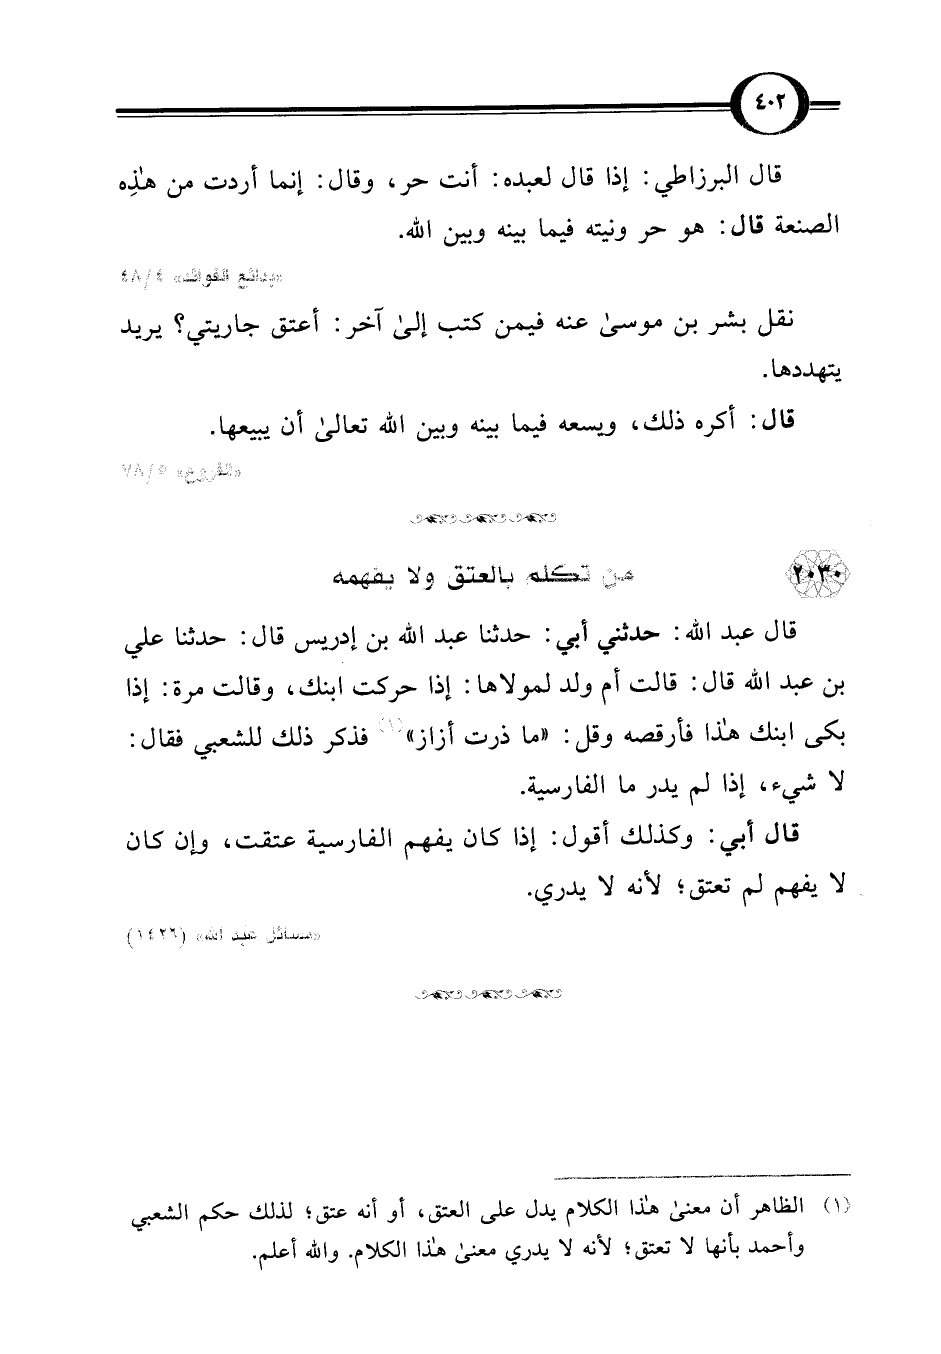 ٤٠٢
قال البرزاطي: إذا قال لعبده: أنت حر، وقال: إنما أردت من هذِه
الصنعة قال: هو حر ونيته فيما بينه وبين الله.
«بدائع الفوائد» ٤/٤٨
نقل بشر بن موسىٰ عنه فيمن كتب إلىٰ آخر: أعتق جاريتي؟ يريد
يتهددها.
قال: أكره ذلك، ويسعه فيما بينه وبين الله تعالىٰ أن يبيعها.
«الفروع» ٥/٧٨
٢٠٣٠ من تكلم بالعتق ولا يفهمه
قال عبد الله: حدثني أبي: حدثنا عبد الله بن إدريس قال: حدثنا علي
بن عبد الله قال: قالت أم ولد لمولاها: إذا حركت ابنك، وقالت مرة: إذا
بكى ابنك هذا فأرقصه وقل: «ما ذرت أزاز»(١) فذكر ذلك للشعبي فقال:
لا شيء، إذا لم يدر ما الفارسية.
قال أبي: وكذلك أقول: إذا كان يفهم الفارسية عتقت، وإن كان
لا يفهم لم تعتق؛ لأنه لا يدري.
«مسائل عبد الله» (١٤٢٦)
(١) الظاهر أن معنىٰ هذا الكلام يدل على العتق، أو أنه عتق؛ لذلك حكم الشعبي
وأحمد بأنها لا تعتق؛ لأنه لا يدري معنىٰ هذا الكلام. والله أعلم.